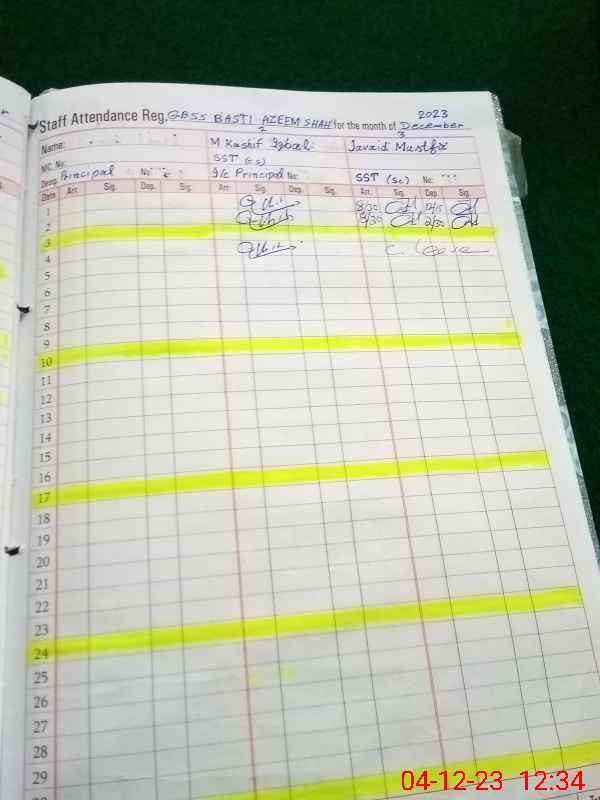 2023
Staff Attendance Reg. GBSS BASTI AZEEM SHAH for the month of December
2 3
Name: M Kashif Iqbal Javaid Mustfa
NIC. No: SST (SC)
Desg. Principal No: I/C Principal No SST (Sc) No:
Date Arr. Sig. Dep. Sig. Arr. Sig. Dep. Sig. Arr. Sig. Dep. Sig.
1 8/30 12/15
2 8/30 2/30
3
4 C. Leave
5
6
7
8
9
10
11
12
13
14
15
16
17
18
19
20
21
22
23
24
25
26
27
28
29
04-12-23 12:34